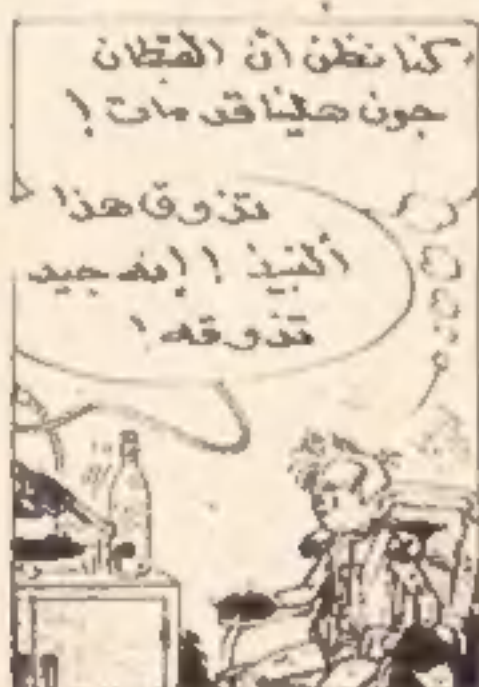 كنا نظن أن القبطان
جون هلينا قد مات !
تذوق هذا
ألنبيذ ! إنه جيد
تذوقه !